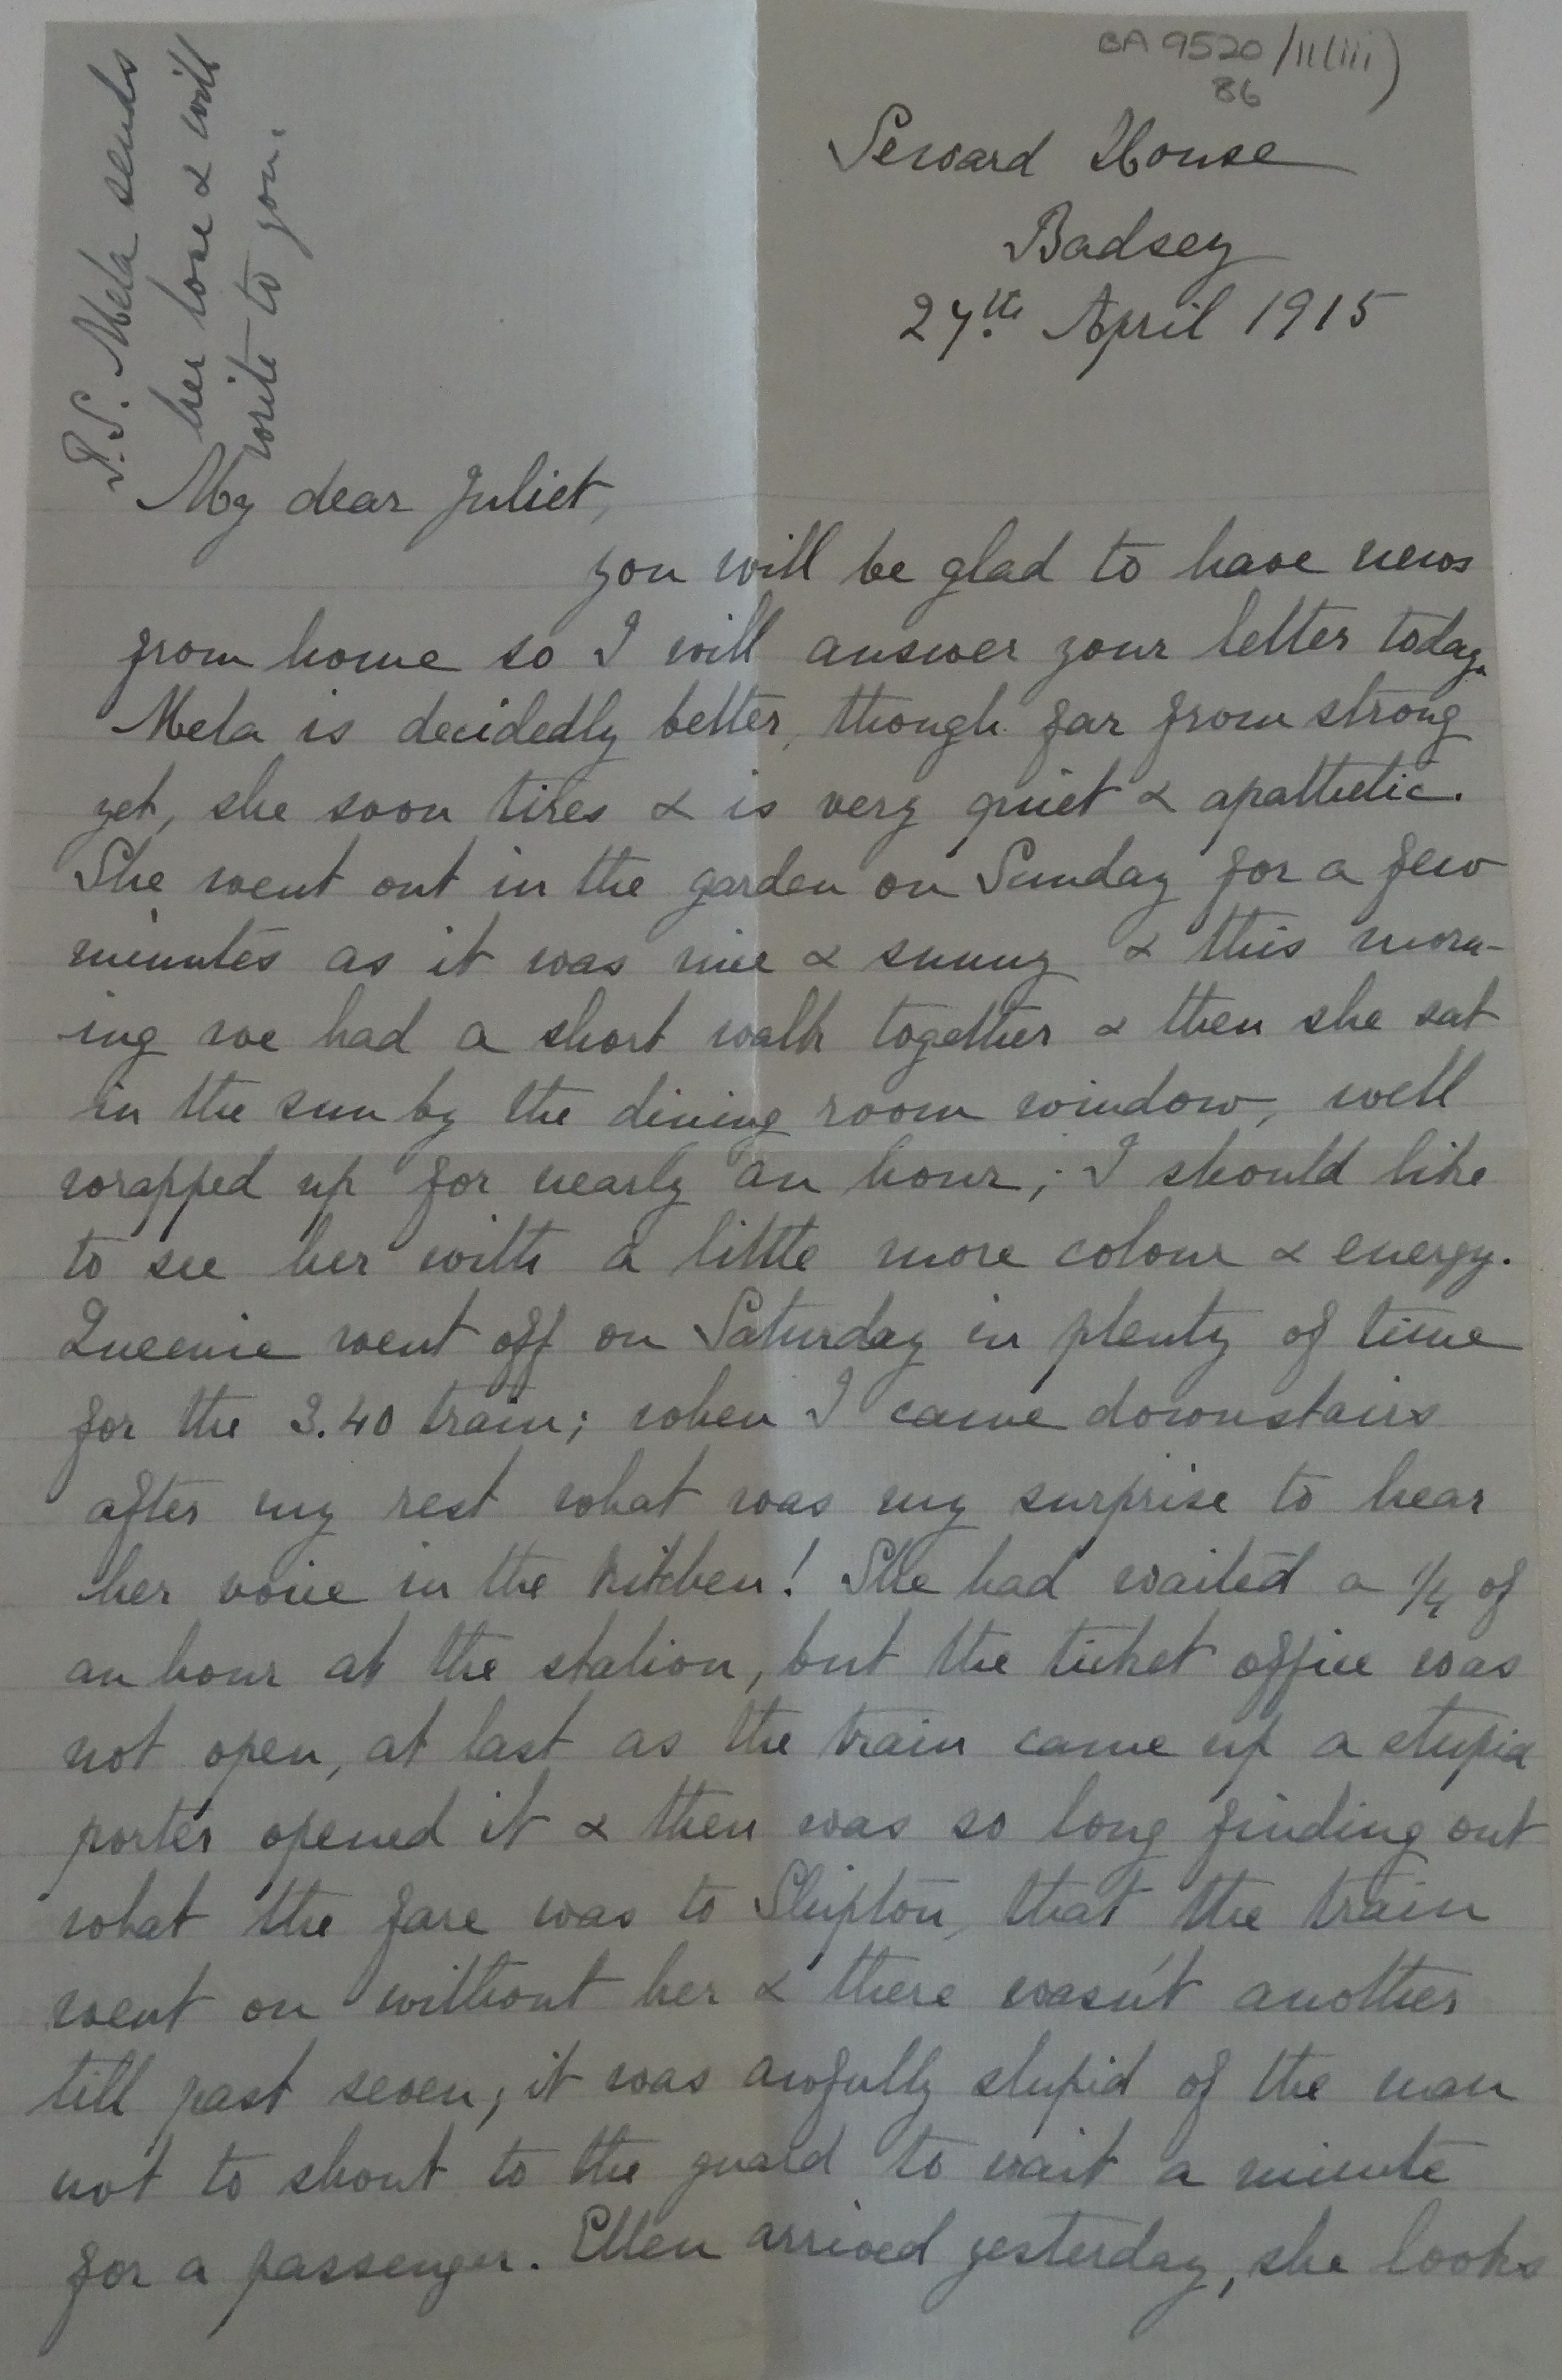 BA 9520/11(iii)
86
Seward House
Badsey
27th. April 1915
P.S. Mela sends
her love & will
write to you.
My dear Juliet,
you will be glad to have news
from home so I will answer your letter today.
Mela is decidedly better, though far from strong
yet, she soon tires & is very quiet & apathetic.
She went out in the garden on Sunday for a few
minutes as it was nice & sunny & this morn-
ing we had a short walk together & then she sat
in the sun by the dining room window, well
wrapped up for nearly an hour; I should like
to see her with a little more colour & energy.
Queenie went off on Saturday in plenty of time
for the 3.40 train; when I came downstairs
after my rest what was my surprise to hear
her voice in the kitchen! She had waited a 1/4 of
an hour at the station, but the ticket office was
not open, at last as the train came up a stupid
porter opened it & then was so long finding out
what the fare was to Shipton, that the train
went on without her & there wasn't another
till past seven; it was awfully stupid of the man
not to shout to the guard to wait a minute
for a passenger. Ellen arrived yesterday, she looks